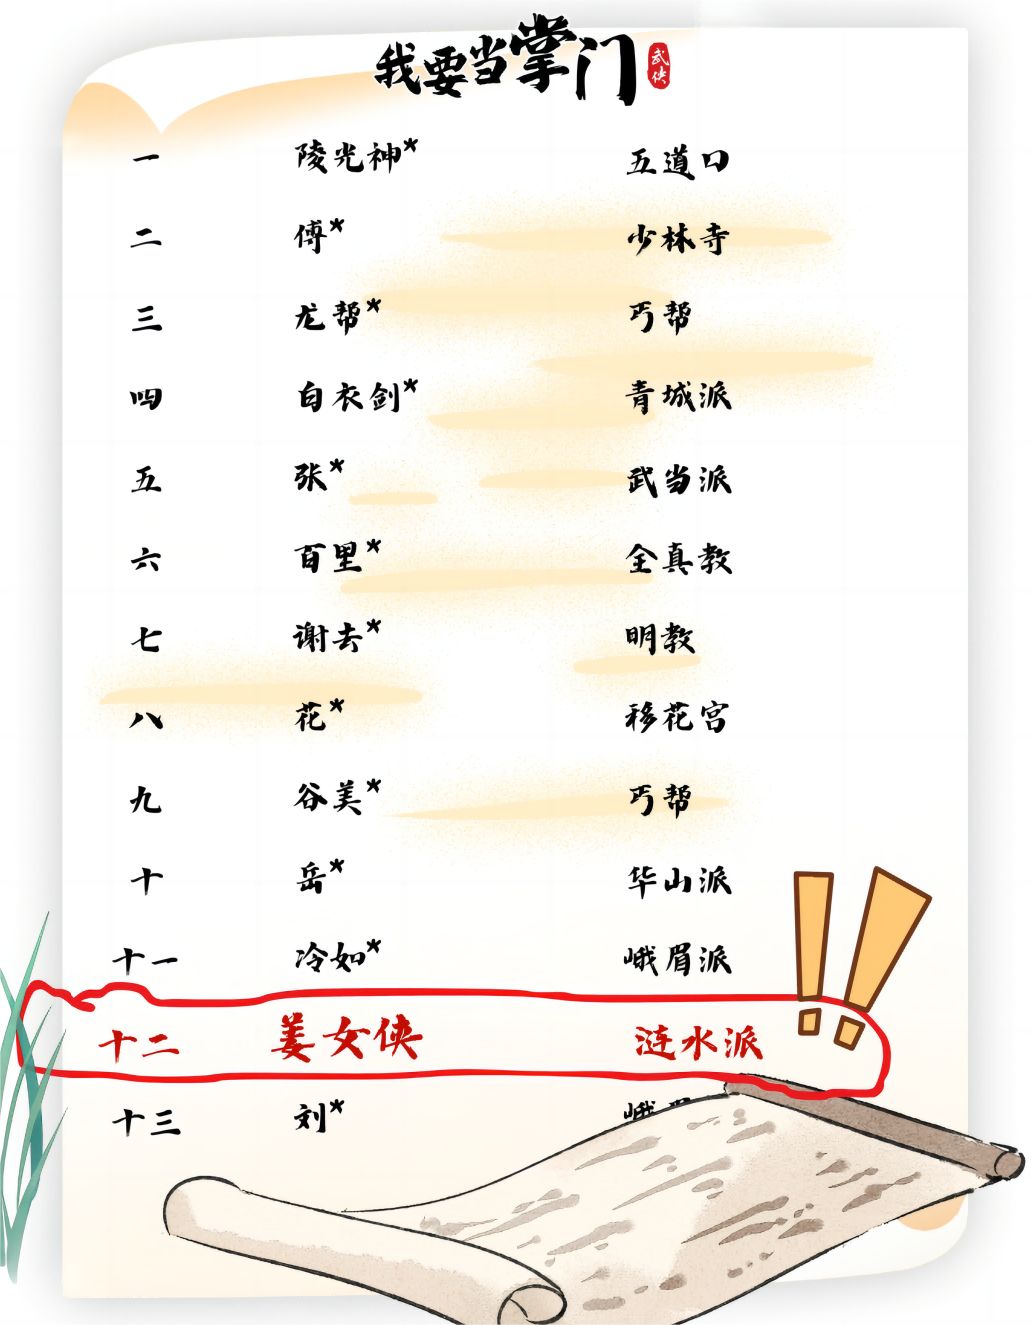 我要当掌门 武侠
一 陵光神* 五道口
二 傅* 少林寺
三 龙帮* 丐帮
四 白衣剑* 青城派
五 张* 武当派
六 百里* 全真教
七 谢去* 明教
八 花* 移花宫
九 谷美* 丐帮
十 岳* 华山派
十一 冷如* 峨眉派
十二 姜女侠 涟水派
十三 刘* 峨